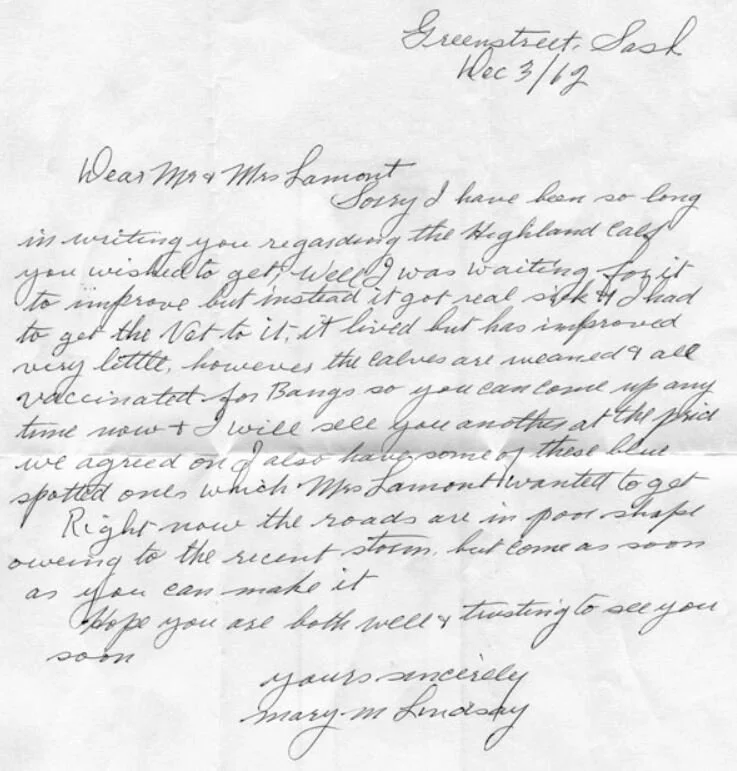 Greenstreet, Sask
Dec 3/62
Dear Mr & Mrs Lamont
Sorry I have been so long
in writing you regarding the Highland Calf
you wished to get, Well I was waiting for it
to improve but instead it got real sick & I had
to get the Vet to it, it lived but has improved
very little, however the calves are weaned & all
vaccinated for Bangs so you can come up any
time now & I will sell you another at the price
we agreed on I also have some of these blue
spotted ones which Mrs Lamont wanted to get
Right now the roads are in poor shape
oweing to the recent storm, but come as soon
as you can make it
Hope you are both well & trusting to see you
soon
yours sincerely
Mary M Lindsay